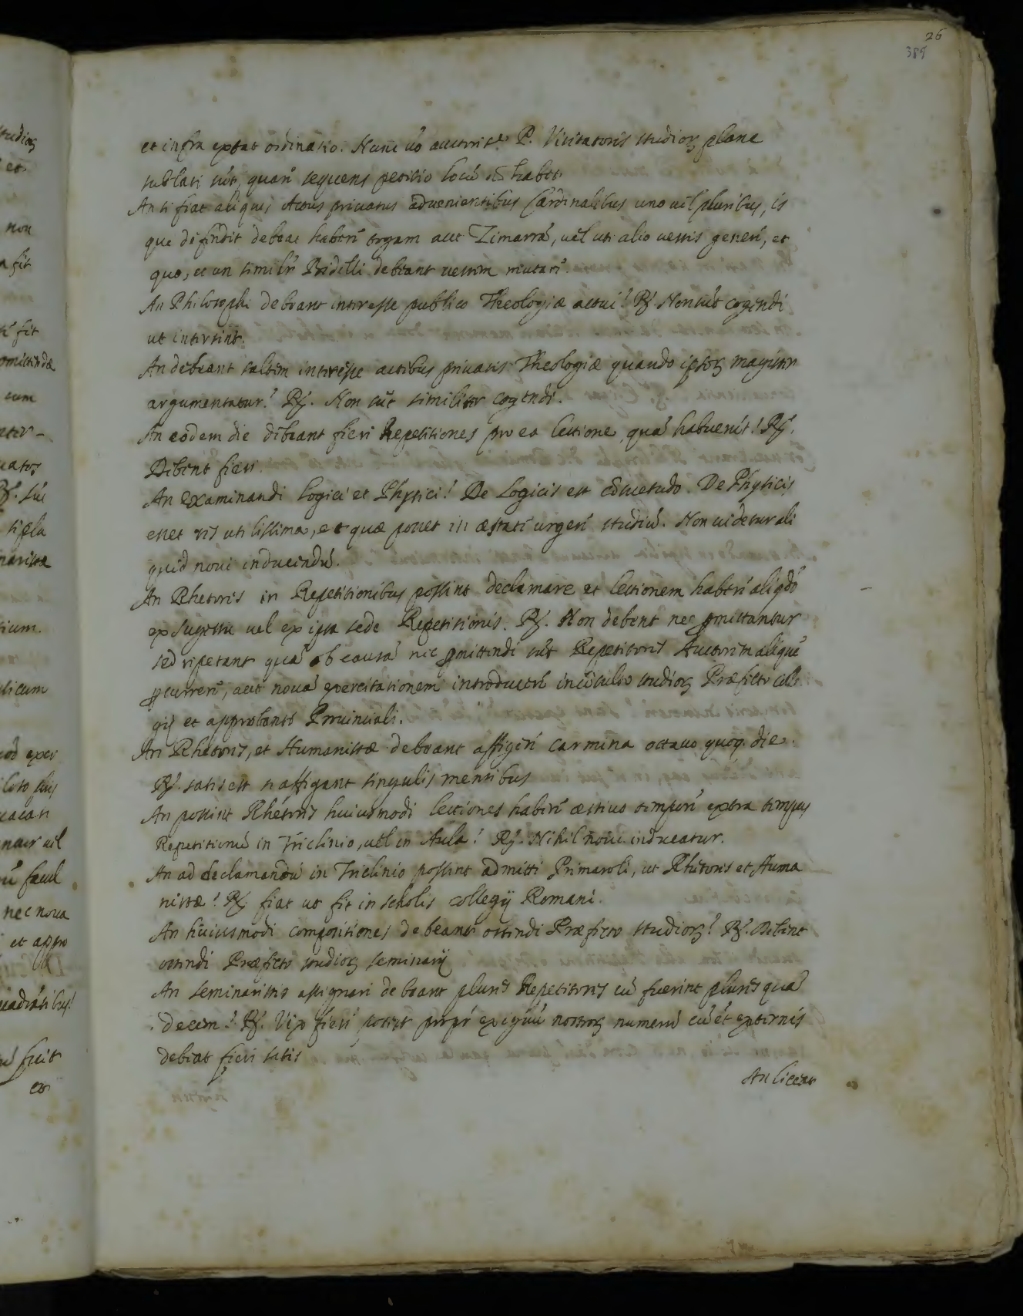 26
385
et infra extat ordinatio. Nunc uò auctorite P. Visitatoris studiorꝫ plane
sublati sut, quare sequens petitio locu nō habet.
An si fiat aliquis Actus priuatus aduenientibus Cardinalibus uno uel pluribus, is
que defendit debeat haberi togam aut Zimarrā, uel uti alio uestis genere, et
quo, et an similr Bidelli debeant uestem mutare.
An Philosophi debeant interesse publico Theologiæ actui? R. Non sūt cogendi
ut intersint.
An debeant saltem interesse actibus priuatis Theologiæ quando ipsorꝫ magister
argumentatur? R. Non sūt similiter cogendi.
An eodem die debeant fieri Repetitiones pro ea lectione, quā habuerit? R.
Debent fieri.
An Examinandi Logici et Physici? De Logicis est cōsuetudo. De Physicis
esset res utilissima, et quæ posset in æstate urgeri studiū. Non uidetur ali
quid noui inducendū.
An Rhetores in Repetitionibus possint declamare et lectionem habere aliqdō
ex Sugestu uel ex ipsa sede Repetitionis. R. Non debent nec ꝓmittantur
sed repetant quā ob causā nec ꝓmittendi sūt Repetitores Auctoritatē aliquē
ꝓcurrere, aut nouā exercitationem introducere inconsulto studiorꝫ Præfecto Colle
gij et approbante Prouinciali.
An Rhetores, et Humanistæ debeant affigere carmina octauo quoqꝫ die.
R. satis est si affigant singulis mensibus
An possint Rhetores huiusmodi lectiones habere æstiuo tempore extra tempus
Repetitionū in Triclinio, uel in Aula? R. Nihil noui inducatur.
An ad declamandū in Triclinio possint admitti Primaroli, ut Rhetores et Huma
nistæ? R. fiat ut fit in scholis collegij Romani.
An huiusmodi compositiones debeant ostendi Præfecto studiorꝫ? R. Debent
ostendi Præfecto studiorꝫ seminarij
An seminaristis assignari debeant plures Repetitores cū fuerint plures quā
decem? R. Vix fieri potest propr exiguū nostrorꝫ numerū cū et externis
debeat fieri satis
An liceat